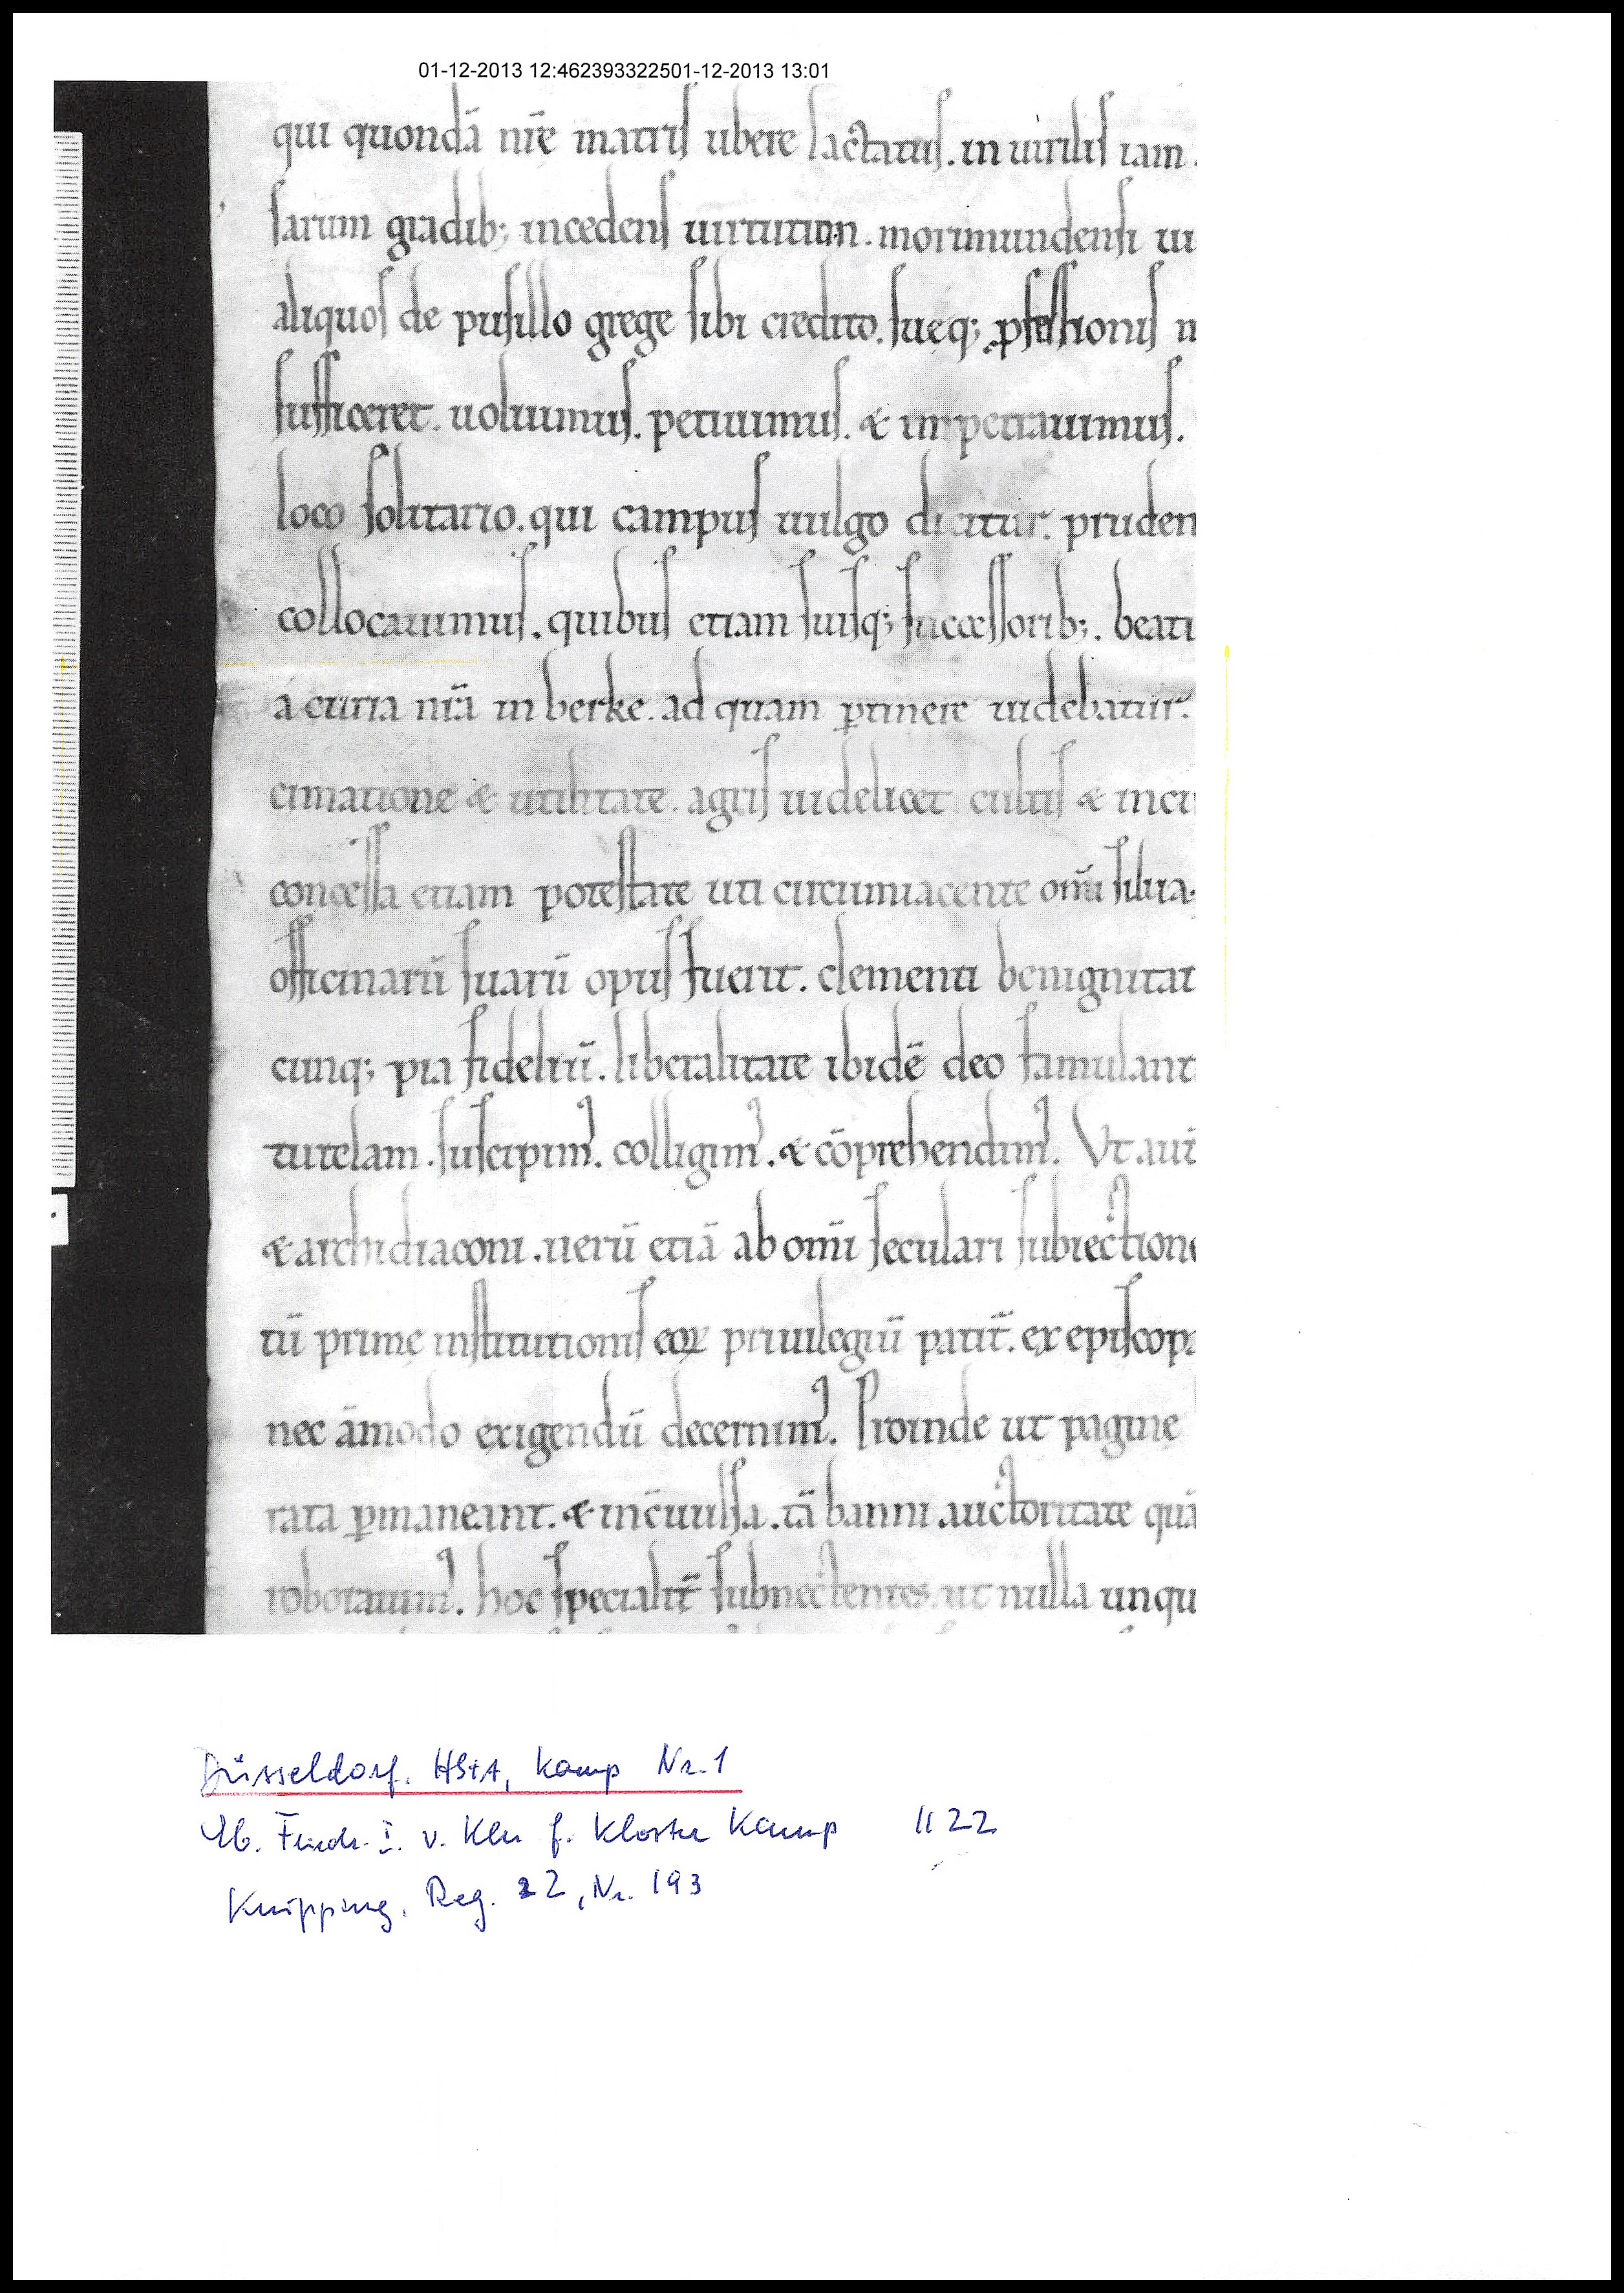 01-12-2013 12:462393322501-12-2013 13:01
qui quondā nr̄ę matris ubere lactatus. in uirilis iam.
sarum gradib; incedens uirtutum. morimundensi ui
aliquos de pusillo grege sibi credito. suęq; ꝓfessionis
sufficeret. uoluimus. petiuimus. & impetrauimus.
loco solitario. qui campus uulgo dicitur. pruden
collocauimus. quibus etiam suisq; successorib;. beati
a curia nr̄a in berke. ad quam ꝑtinere uidebatur.
cinatione & utilitate. agris uidelicet cultis & incu
concessa etiam potestate uti circumiacente om̄i silua.
officinarū suarū opus fuerit. clementi benignitat
cunq; pia fideliū. liberalitate ibidē deo famulant
tutelam. suscipim'. colligim'. & cōprehendim'. Vt aut̄
& archidiaconi. uerū etiā ab om̄i seculari subiectione
tū primę institutionis eoꝝ priuilegiū patit̄. ex episcop
nec āmodo exigendū decernim'. Proinde ut paginę
rata ꝑmaneant. & incōuulsa. tā banni auctoritate quā
roborauim'. hoc specialit̄ subnectentes. ut nulla unqu
Düsseldorf. HStA, Kamp Nr. 1
Eb. Friedr. I. v. Kln f. Kloster Kamp 1122
Knipping, Reg. 2, Nr. 193